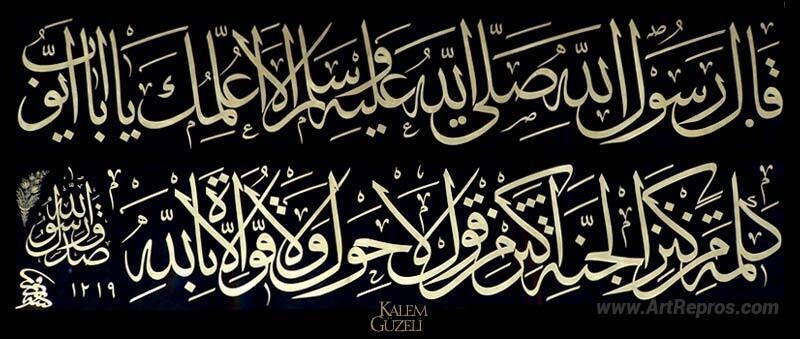 قال رسول الله صلى الله عليه وسلم الا اعلمك يا ابا ايوب
كلمة من كنز الجنة اكثر من قول لا حول ولا قوة الا بالله
صدق رسول الله
١٢١٩
KALEM
GÜZELİ
www.ArtRepros.com